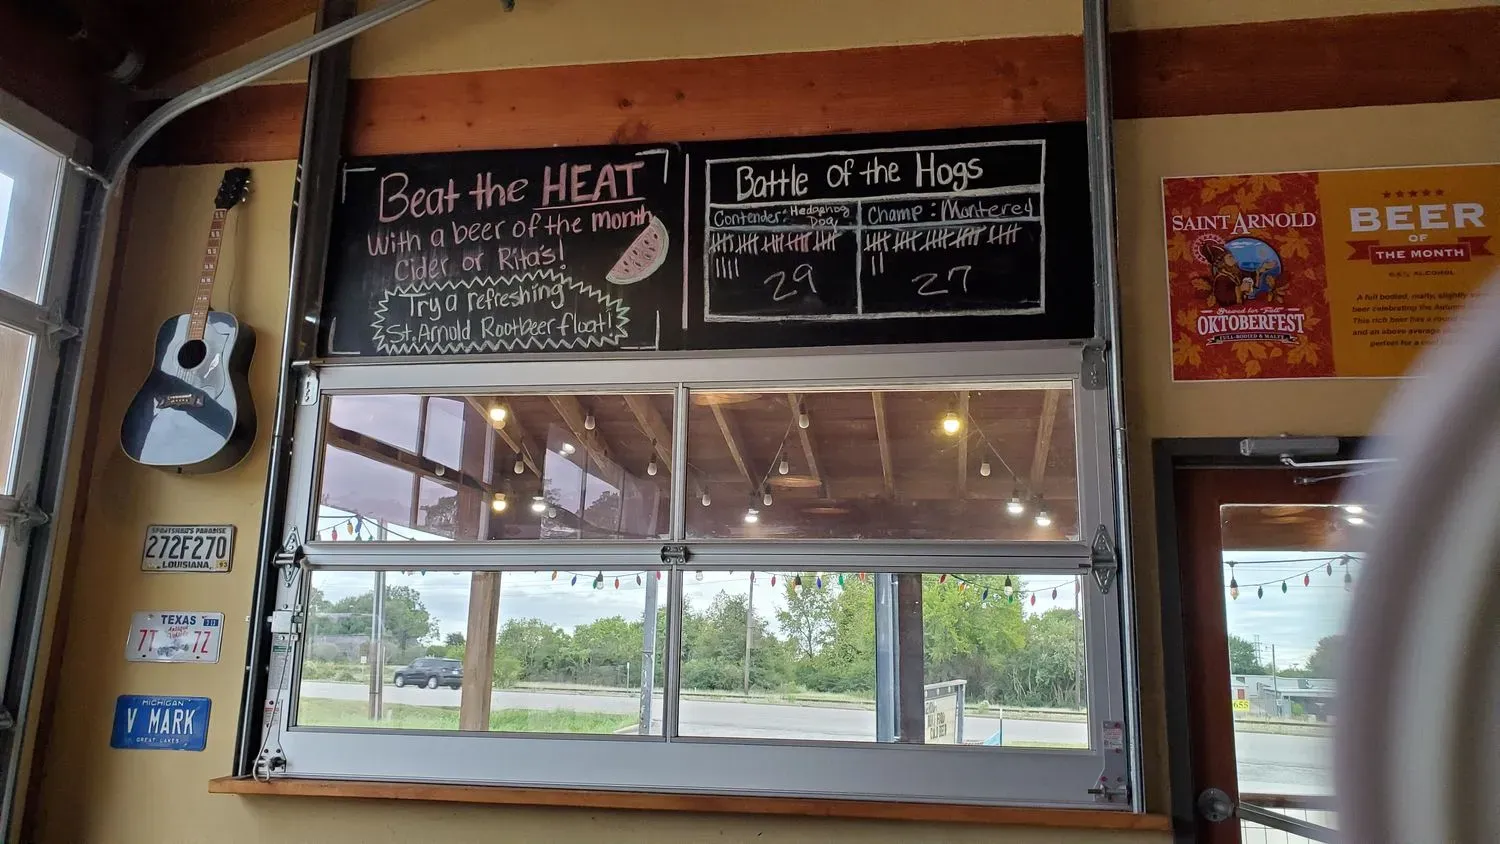 Beat the HEAT
With a beer of the month
Cider or Rita's!
Try a refreshing
St. Arnold Rootbeer float!
Battle Of the Hogs
Contender: Hedgehog
Dog
Champ: Monterey
29
27
SAINT ARNOLD
Brewed for Fall
OKTOBERFEST
FULL-BODIED & MALTY
★★★★★
BEER
OF
THE MONTH
ALCOHOL
A full bodied, malty, slightly
beer celebrating the Autumn
This rich beer has a round
and an above average
perfect for a cool
SPORTSMAN'S PARADISE
272F270
LOUISIANA 93
TEXAS
7T 7Z
MICHIGAN
V MARK
GREAT LAKES
655